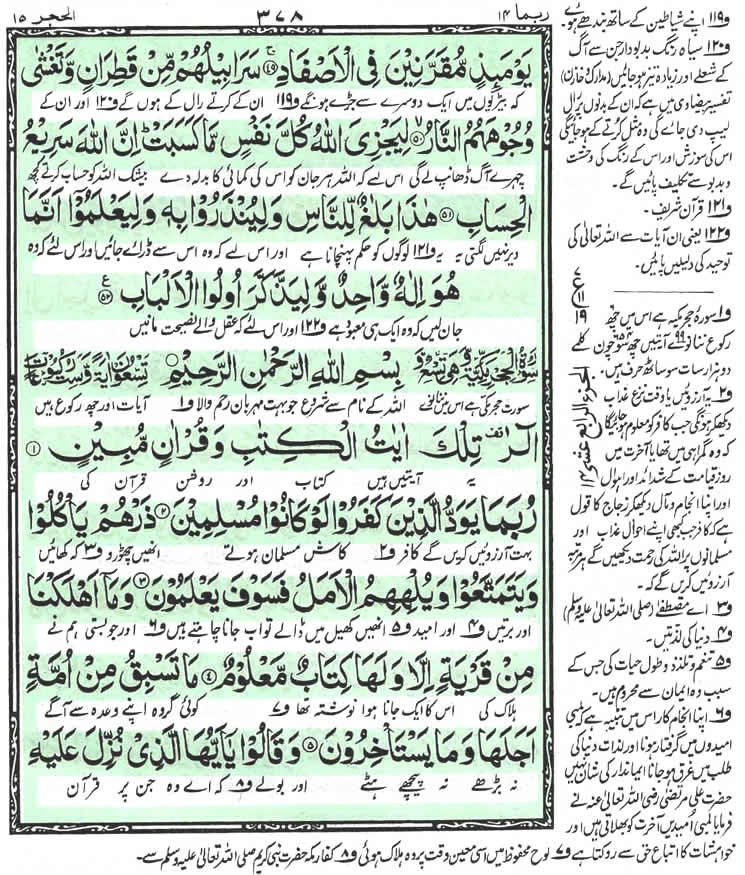 ربما ۱۴
۳۷۸
الحجر ۱۵
يَوْمَىِٕذٍ مُّقَرَّنِيْنَ فِى الْاَصْفَادِ ۴۹ سَرَابِيْلُهُمْ مِّنْ قَطِرَانٍ وَّتَغْشٰى
کہ بیڑیوں میں ایک دوسرے سے جڑے ہونگے و۱۱۹ ان کے کرتے رال کے ہوں گے و۱۲۰ اور ان کے
وُجُوْهَهُمُ النَّارُ ۵۰ لِيَجْزِىَ اللّٰهُ كُلَّ نَفْسٍ مَّا كَسَبَتْ اِنَّ اللّٰهَ سَرِيْعُ
چہرے آگ ڈھانپ لے گی اس لیے کہ اللہ ہر جان کو اس کی کمائی کا بدلہ دے بیشک اللہ کو حساب کرتے کچھ
الْحِسَابِ ۵۱ هٰذَا بَلٰغٌ لِّلنَّاسِ وَلِيُنْذَرُوْا بِهٖ وَلِيَعْلَمُوْٓا اَنَّمَا
دیر نہیں لگتی یہ و۱۲۱ لوگوں کو حکم پہنچانا ہے اور اس لیے کہ وہ اس سے ڈرائے جائیں اور اس لئے کہ وہ
هُوَ اِلٰهٌ وَّاحِدٌ وَّلِيَذَّكَّرَ اُولُوا الْاَلْبَابِ ۵۲
جان لیں کہ وہ ایک ہی معبود ہے و۱۲۲ اور اس لئے کہ عقل والے نصیحت مانیں
بِسْمِ اللّٰهِ الرَّحْمٰنِ الرَّحِيْمِ
سورت حجر مکی ہے اس میں ننانوے اللہ کے نام سے شروع جو بہت مہربان رحم والا و۱ آیات اور چھ رکوع ہیں
الٓرٰ تِلْكَ اٰيٰتُ الْكِتٰبِ وَقُرْاٰنٍ مُّبِيْنٍ ۱
یہ آیتیں ہیں کتاب اور روشن قرآن کی
رُبَمَا يَوَدُّ الَّذِيْنَ كَفَرُوْا لَوْ كَانُوْا مُسْلِمِيْنَ ۲ ذَرْهُمْ يَاْكُلُوْا
بہت آرزوئیں کریں گے کافر و۲ کاش مسلمان ہوتے انھیں چھوڑو و۳ کہ کھائیں
وَيَتَمَتَّعُوْا وَيُلْهِهِمُ الْاَمَلُ فَسَوْفَ يَعْلَمُوْنَ ۳ وَمَآ اَهْلَكْنَا
اور برتیں و۴ اور امید و۵ انھیں کھیل میں ڈالے تو اب جانا چاہتے ہیں و۶ اور جو بستی ہم نے
مِنْ قَرْيَةٍ اِلَّا وَلَهَا كِتَابٌ مَّعْلُوْمٌ ۴ مَا تَسْبِقُ مِنْ اُمَّةٍ
ہلاک کی اس کا ایک جانا ہوا نوشتہ تھا و۷ کوئی گروہ اپنے وعدہ سے آگے
اَجَلَهَا وَمَا يَسْتَاْخِرُوْنَ ۵ وَقَالُوْا يٰٓاَيُّهَا الَّذِىْ نُزِّلَ عَلَيْهِ
نہ بڑھے نہ پیچھے ہٹے اور بولے و۸ کہ اے وہ جن پر قرآن
و۱۱۹ اپنے شیاطین کے ساتھ بندھے ہوئے
و۱۲۰ سیاہ رنگ بدبودار جن سے آگ
کے شعلے اور زیادہ تیز ہو جائیں (مدارک و خازن)
تفسیر بیضاوی میں ہے کہ ان کے بدنوں پر رال
لیپ دی جائے گی وہ مثل کرتے کے ہو جائیگی
اس کی سوزش اور اس کے رنگ کی وحشت
و بدبو سے تکلیف پائیں گے۔
و۱۲۱ قرآن شریف۔
و۱۲۲ یعنی ان آیات سے اللہ تعالیٰ کی
توحید کی دلیلیں پائیں۔
ع
۱۱
۱۹
الجزء الرابع عشر ۱۴
و۱ سورۂ حجر مکیہ ہے اس میں چھ
رکوع ننانوے ۹۹ آیتیں چھ سو چون کلمے
دو ہزار سات سو ساٹھ حرف ہیں۔
و۲ یہ آرزوئیں یا وقت نزع عذاب
دیکھ کر ہونگی جب کافر کو معلوم ہو جائیگا
کہ وہ گمراہی میں تھا یا آخرت میں
روز قیامت کے شدائد اور اہوال
اور اپنا انجام و مآل دیکھ کر زجاج کا قول
ہے کہ کافر جب کبھی اپنے احوال عذاب اور
مسلمانوں پر اللہ کی رحمت دیکھیں گے ہر مرتبہ
آرزوئیں کریں گے کہ۔
و۳ اے مصطفےٰ (صلی اللہ تعالیٰ علیہ وسلم)
و۴ دنیا کی لذتیں۔
و۵ تنعم و تلذذ و طول حیات کی جس کے
سبب وہ ایمان سے محروم ہیں۔
و۶ اپنا انجام کار اس میں تنبیہ ہے کہ لمبی
امیدوں میں گرفتار ہونا اور لذات دنیا کی
طلب میں غرق ہو جانا ایماندار کی شان نہیں
حضرت علی مرتضیٰ رضی اللہ تعالیٰ عنہ نے
فرمایا لمبی امیدیں آخرت کو بھلاتی ہیں اور
خواہشات کا اتباع حق سے روکتا ہے و۷ لوح محفوظ میں اسی معین وقت پر وہ ہلاک ہوئی و۸ کفار مکہ حضرت نبی کریم صلی اللہ تعالیٰ علیہ وسلم سے۔